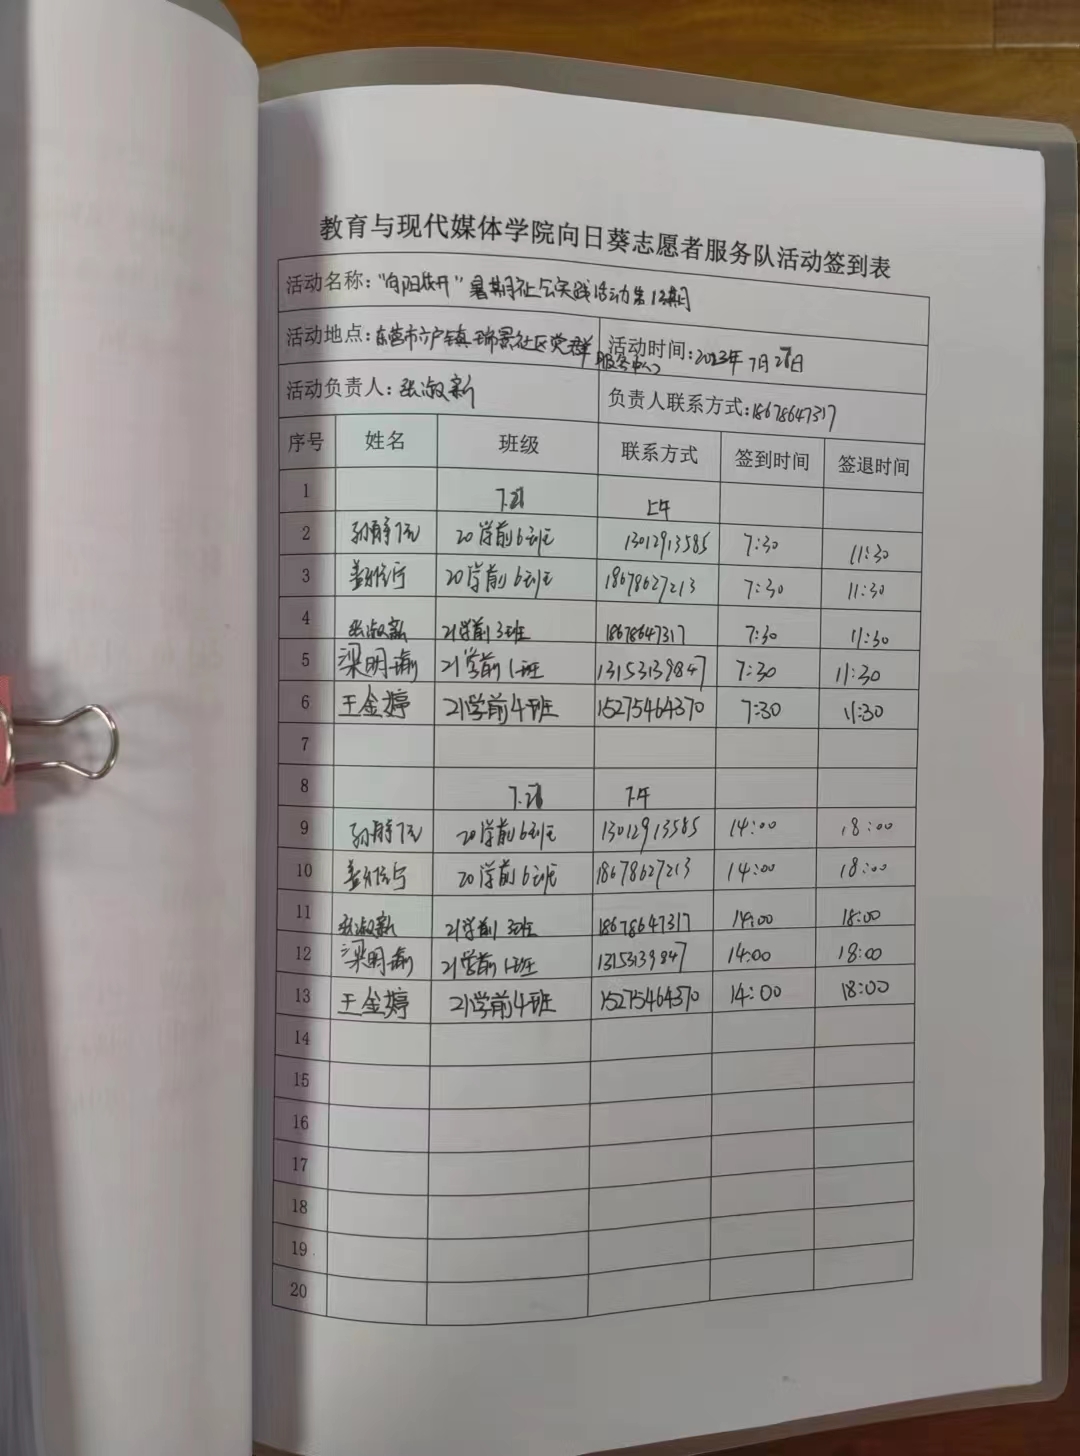 教育与现代媒体学院向日葵志愿者服务队活动签到表
活动名称："向阳花开"暑期社会实践活动第13期
活动地点：东营市六户镇瑞景社区党群服务中心 活动时间：2023年7月28日
活动负责人：张淑新 负责人联系方式：18678647317
序号 姓名 班级 联系方式 签到时间 签退时间
1 7.28 上午
2 孙 20学前6班 13012913585 7:30 11:30
3 姜 20学前6班 18678627213 7:30 11:30
4 张淑新 21学前3班 18678647317 7:30 11:30
5 梁明瑜 21学前1班 13153139847 7:30 11:30
6 王金婷 21学前4班 15275464370 7:30 11:30
7
8 7.28 下午
9 孙 20学前6班 13012913585 14:00 18:00
10 姜 20学前6班 18678627213 14:00 18:00
11 张淑新 21学前3班 18678647317 14:00 18:00
12 梁明瑜 21学前1班 13153139847 14:00 18:00
13 王金婷 21学前4班 15275464370 14:00 18:00
14
15
16
17
18
19
20